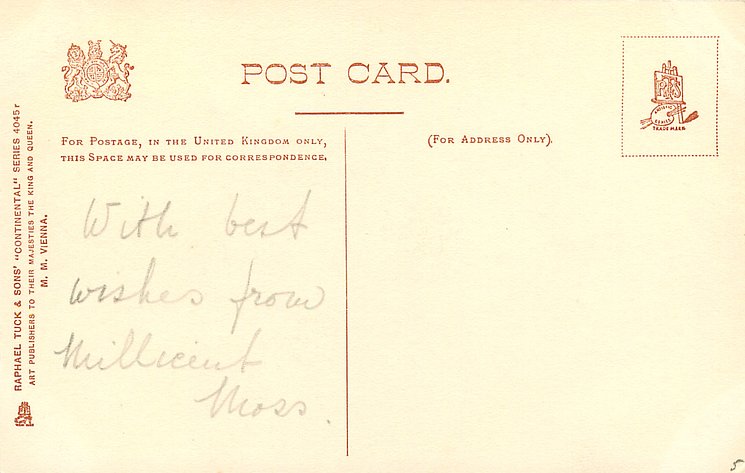 POST CARD.
FOR POSTAGE, IN THE UNITED KINGDOM ONLY,
THIS SPACE MAY BE USED FOR CORRESPONDENCE.
(FOR ADDRESS ONLY).
RTS
ARTISTIC
SERIES
TRADE MARK
RAPHAEL TUCK & SONS' "CONTINENTAL" SERIES 4045 r
ART PUBLISHERS TO THEIR MAJESTIES THE KING AND QUEEN.
M. M. VIENNA.
With best
wishes from
Millicent
Moss.
5